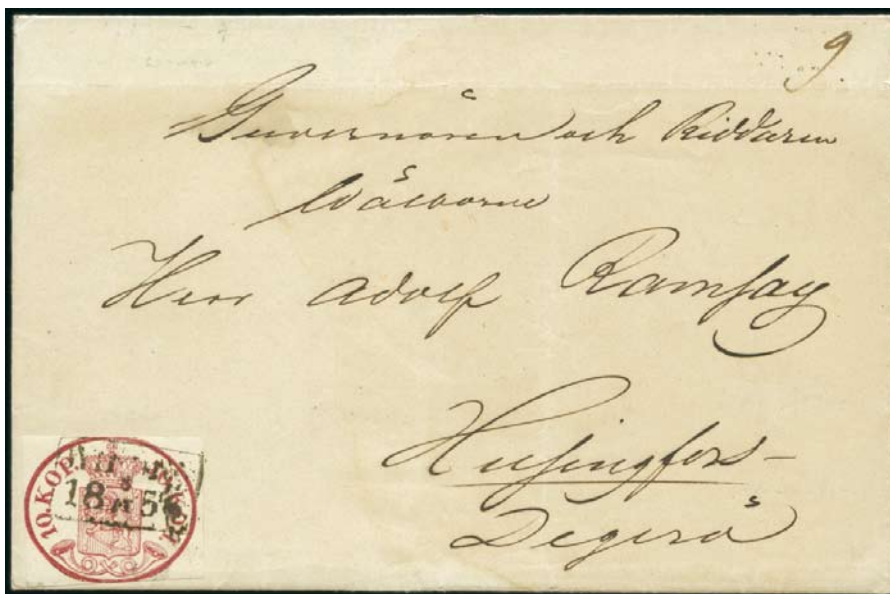 9.
Guvernören och Riddaren
Wälborne
Herr Adolf Ramsay
Helsingfors–
Degerö
10.KOP. 10.KOP.
18 56